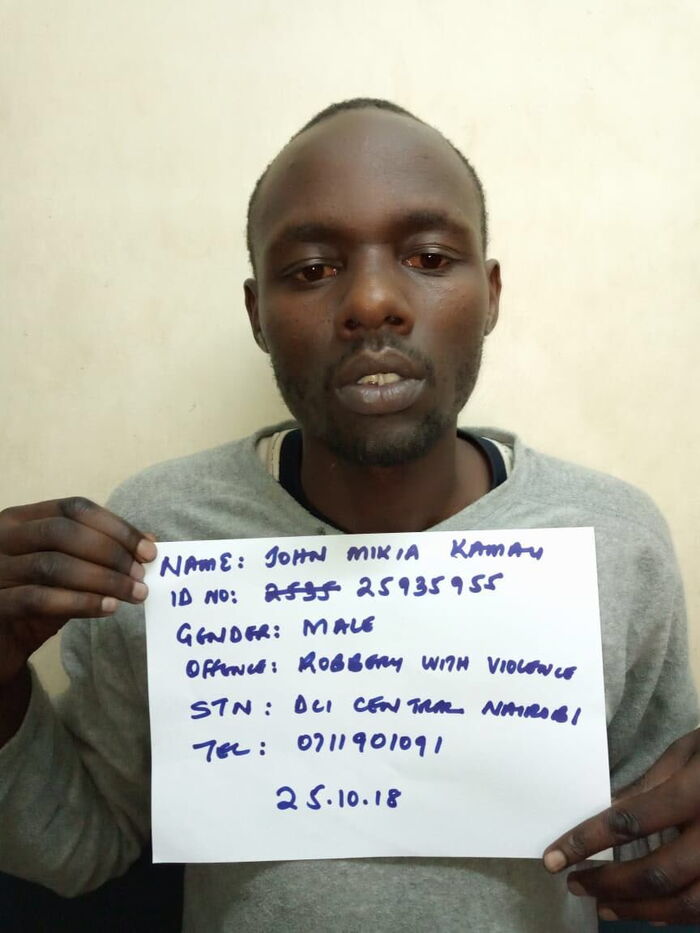 NAME: JOHN MIKIA KAMAU
ID NO: 2535 25935955
GENDER: MALE
OFFENCE: ROBBERY WITH VIOLENCE
STN: DCI CENTRAL NAIROBI
TEL: 0711901091
25.10.18